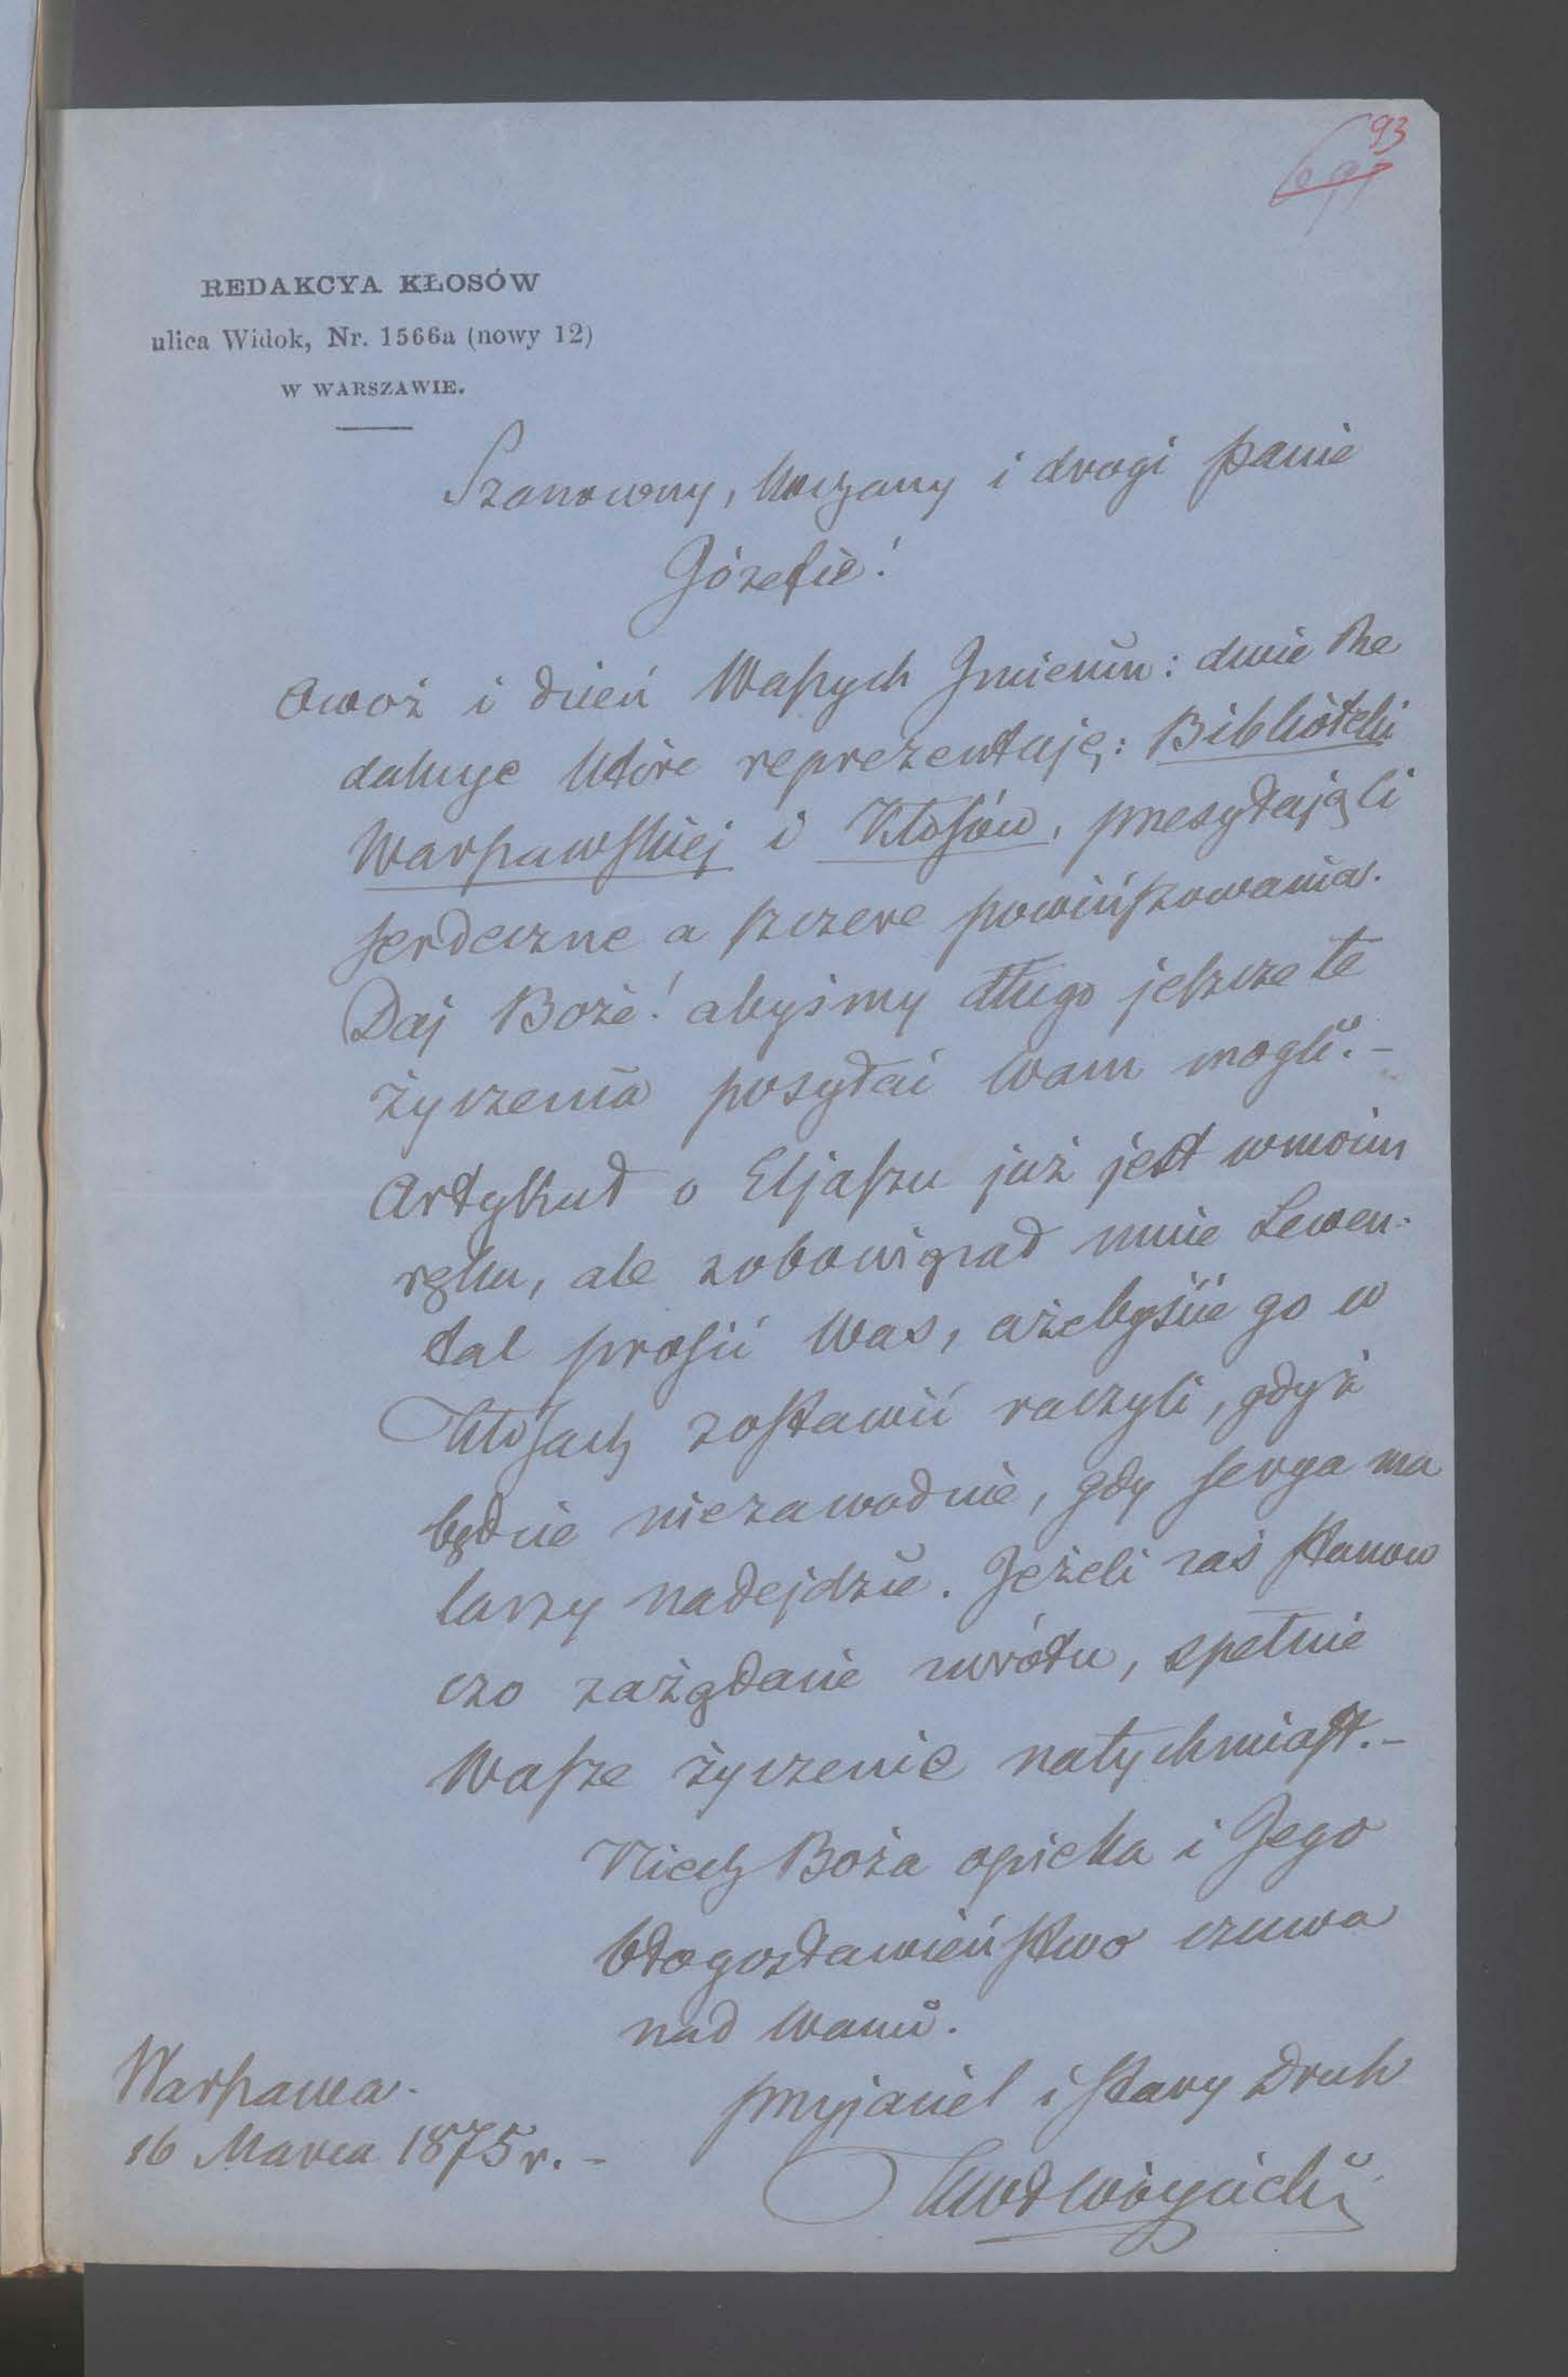 93
REDAKCYA KŁOSÓW
ulica Widok, Nr. 1566a (nowy 12)
W WARSZAWIE.
Szanowny, Kochany i drogi Panie
Józefie!
Owoż i dzień Waszych Imienin: dwie Re
dakcye które reprezentuję: Biblioteki
Warszawskiej i Kłosów, przesyłają Ci
serdeczne a szczere powińszowania.
Daj Boże! abyśmy długo jeszcze te
życzenia posyłać Wam mogli. –
Artykuł o Eljaszu już jest w moim
ręku, ale zobowiązał mnie Lewen-
tal prosić Was, ażebyście go w
Kłosach zostawić raczyli, gdyż
będzie niezawodnie, gdy serya ma
larzy nadejdzie. Jeżeli zaś stanow
czo zażądacie zwrotu, spełnię
Wasze życzenie natychmiast. –
Niech Boża opieka i Jego
błogosławieństwo czuwa
nad Wami.
przyjaciel i stary Druh
KWł Wóycicki
Warszawa.
16 Marca 1875 r. –